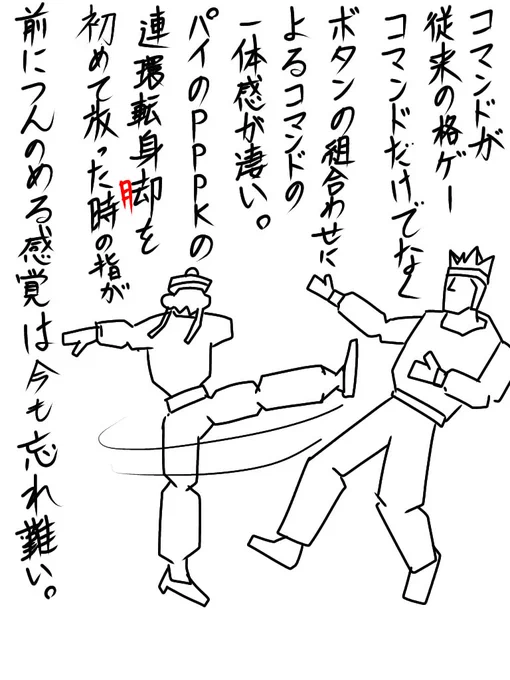 コマンドが
従来の格ゲー
コマンドだけでなく
ボタンの組合わせに
よるコマンドの
一体感が凄い。
パイのPPPKの
連環転身脚を
初めて放った時の指が
前につんのめる感覚は今も忘れ難い。